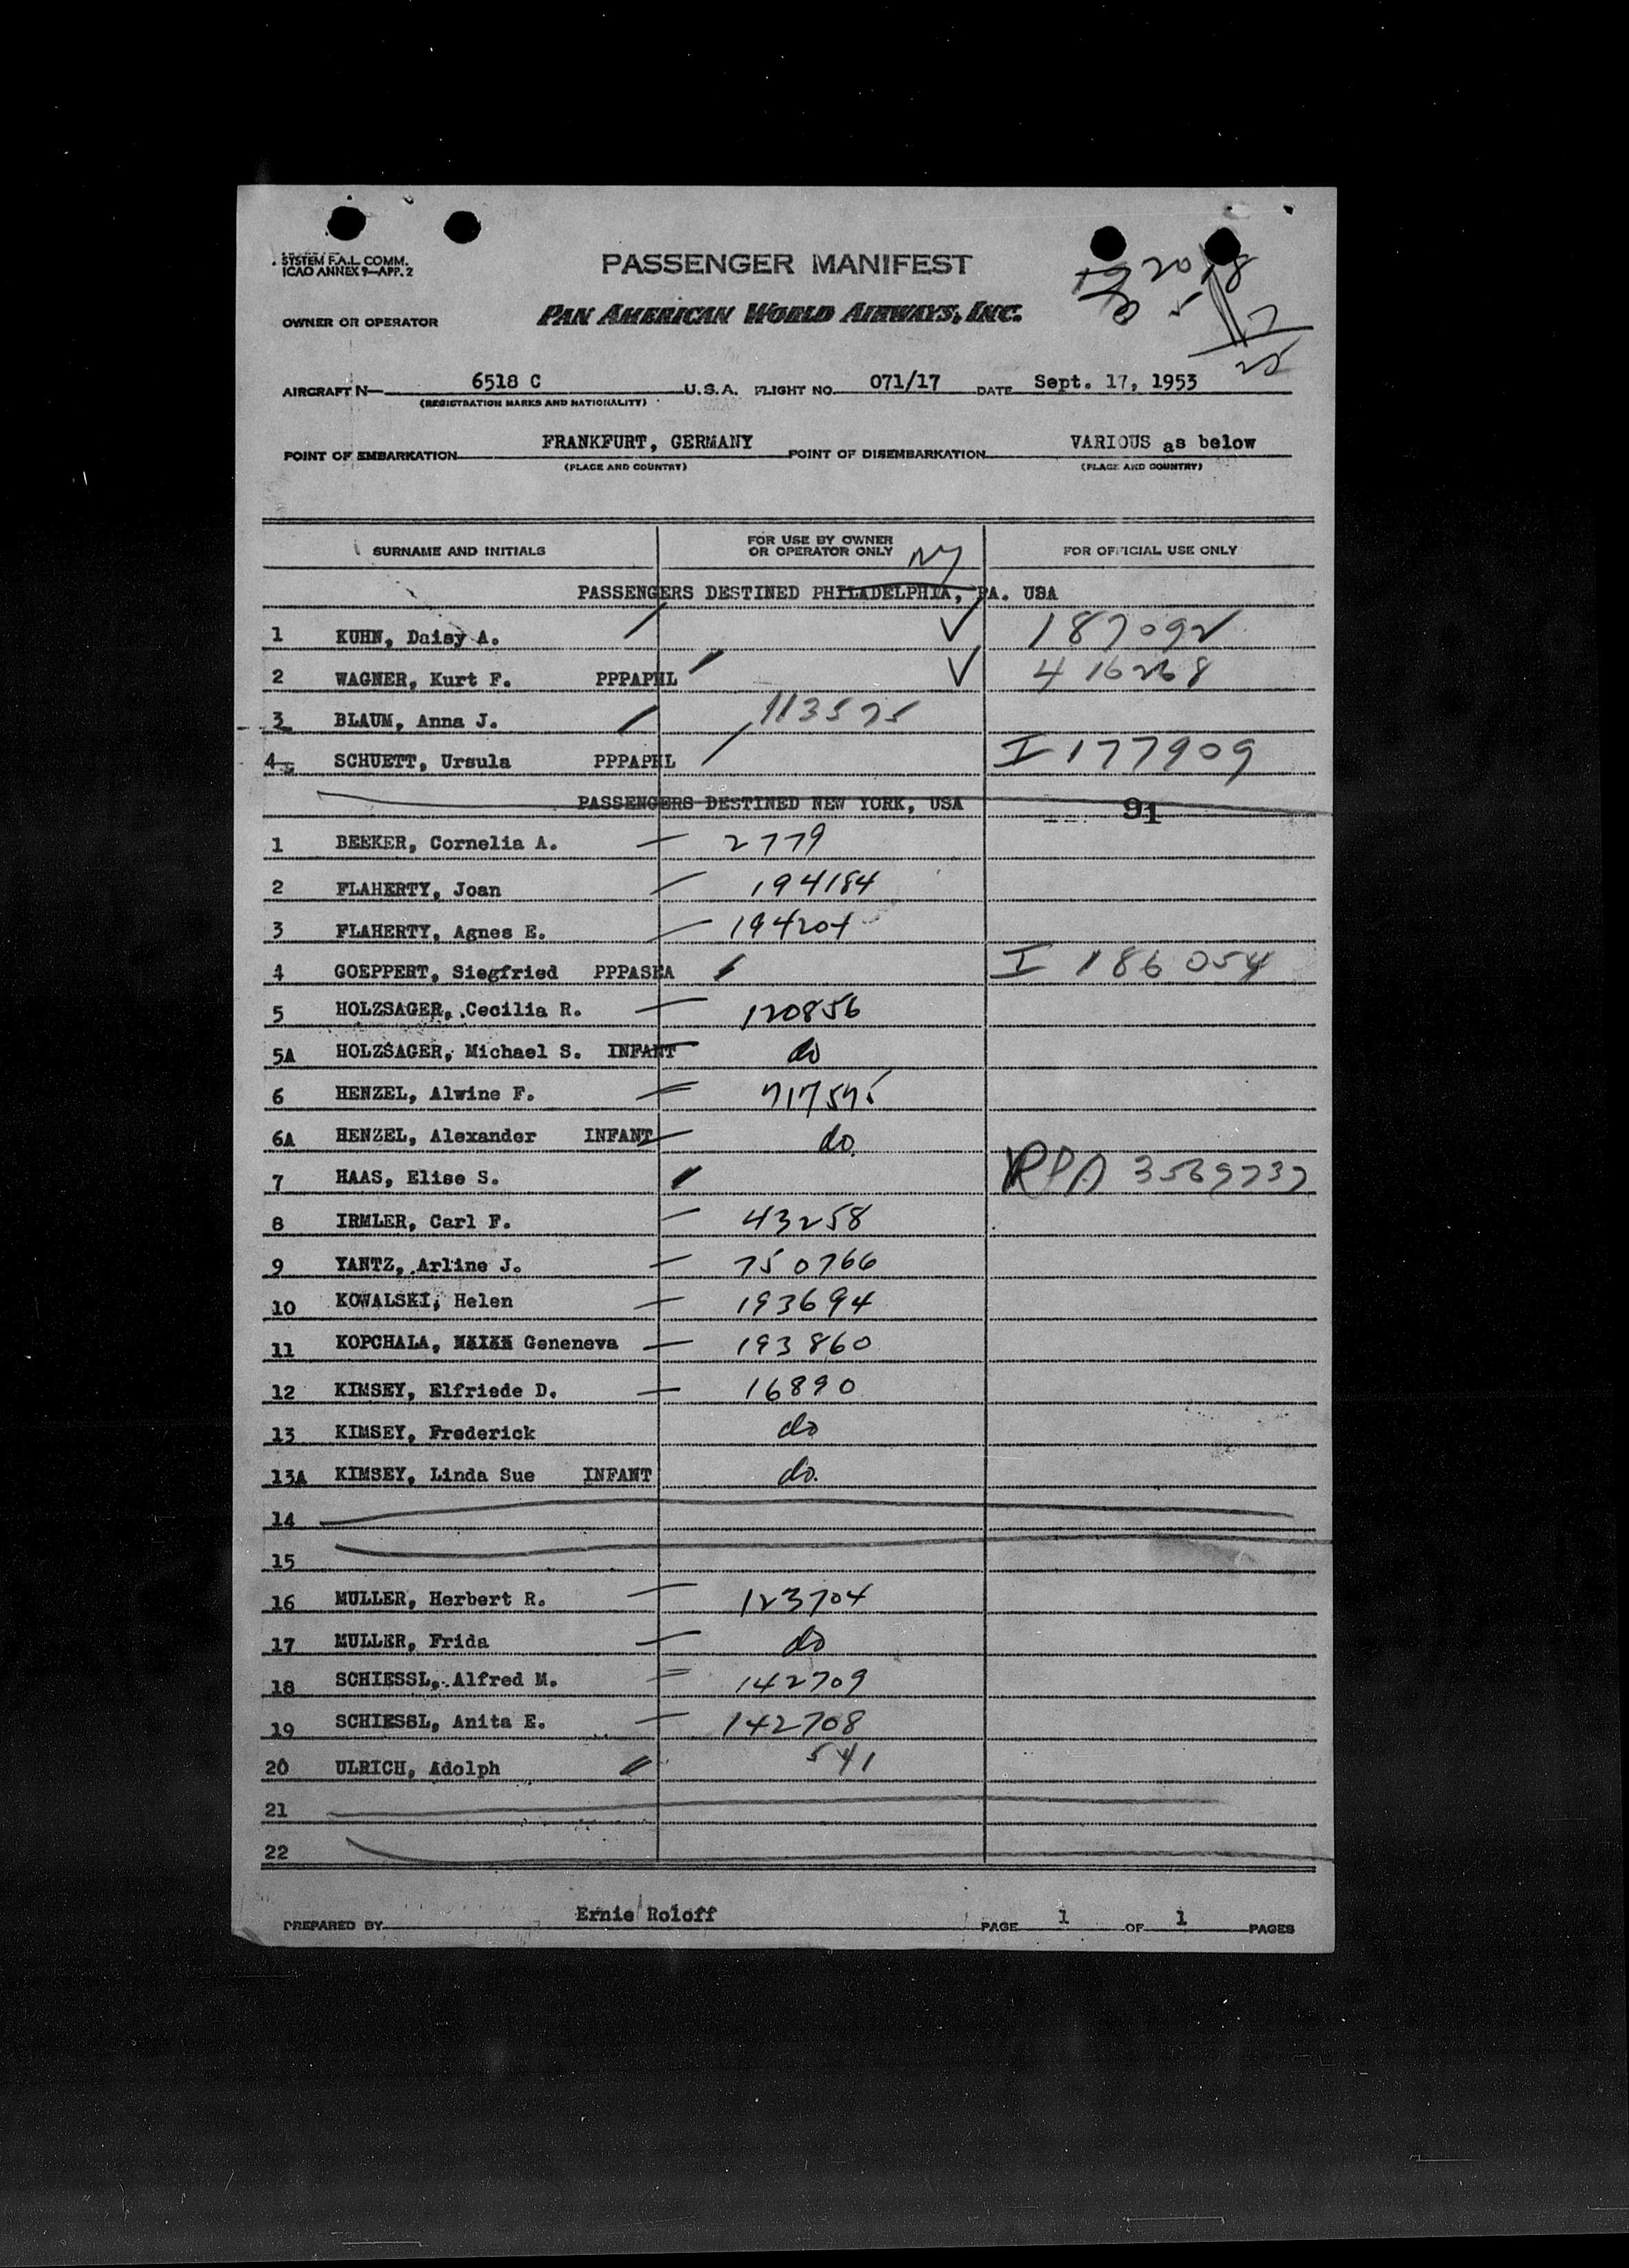 SYSTEM F.A.L. COMM.
ICAO ANNEX 9—APP. 2
PASSENGER MANIFEST
OWNER OR OPERATOR PAN AMERICAN WORLD AIRWAYS, INC.
AIRCRAFT N— 6518 C U.S.A. FLIGHT NO. 071/17 DATE Sept. 17, 1953
(REGISTRATION MARKS AND NATIONALITY)
POINT OF EMBARKATION FRANKFURT, GERMANY POINT OF DISEMBARKATION VARIOUS as below
(PLACE AND COUNTRY) (PLACE AND COUNTRY)
SURNAME AND INITIALS FOR USE BY OWNER OR OPERATOR ONLY FOR OFFICIAL USE ONLY
NY
PASSENGERS DESTINED PHILADELPHIA, PA. USA
1 KUHN, Daisy A. 187092
2 WAGNER, Kurt F. PPPAPHL 416268
3 BLAUM, Anna J. 113575
4 SCHUETT, Ursula PPPAPHL I 177909
PASSENGERS DESTINED NEW YORK, USA 91
1 BEEKER, Cornelia A. 2779
2 FLAHERTY, Joan 194184
3 FLAHERTY, Agnes E. 194204
4 GOEPPERT, Siegfried PPPASEA I 186054
5 HOLZSAGER, Cecilia R. 120856
5A HOLZSAGER, Michael S. INFANT do
6 HENZEL, Alwine F.
6A HENZEL, Alexander INFANT do.
7 HAAS, Elise S. RPA 3569737
8 IRMLER, Carl F. 43258
9 YANTZ, Arline J. 750766
10 KOWALSKI, Helen 193694
11 KOPCHALA, Geneneva 193860
12 KIMSEY, Elfriede D. 16890
13 KIMSEY, Frederick do
13A KIMSEY, Linda Sue INFANT do.
14
15
16 MULLER, Herbert R. 123704
17 MULLER, Frida do
18 SCHIESSL, Alfred M. 142709
19 SCHIESSL, Anita E. 142708
20 ULRICH, Adolph 541
21
22
PREPARED BY Ernie Roloff PAGE 1 OF 1 PAGES